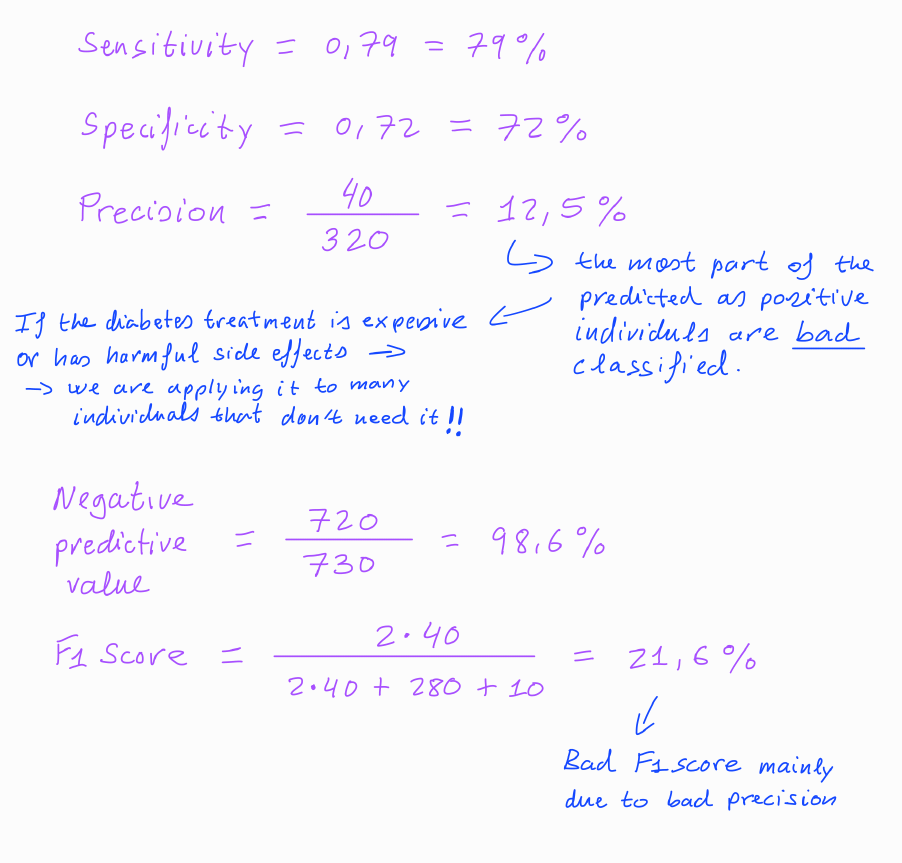 Sensitivity = 0,79 = 79%
Specificity = 0,72 = 72%
Precision = 40 / 320 = 12,5%
the most part of the
predicted as positive
individuls are bad
classified.
If the diabetes treatment is expensive
or has harmful side effects →
→ we are applying it to many
individuals that don't need it!!
Negative
predictive
value
= 720 / 730 = 98,6%
F1 Score = 2·40 / 2·40 + 280 + 10 = 21,6%
Bad F1 score mainly
due to bad precision